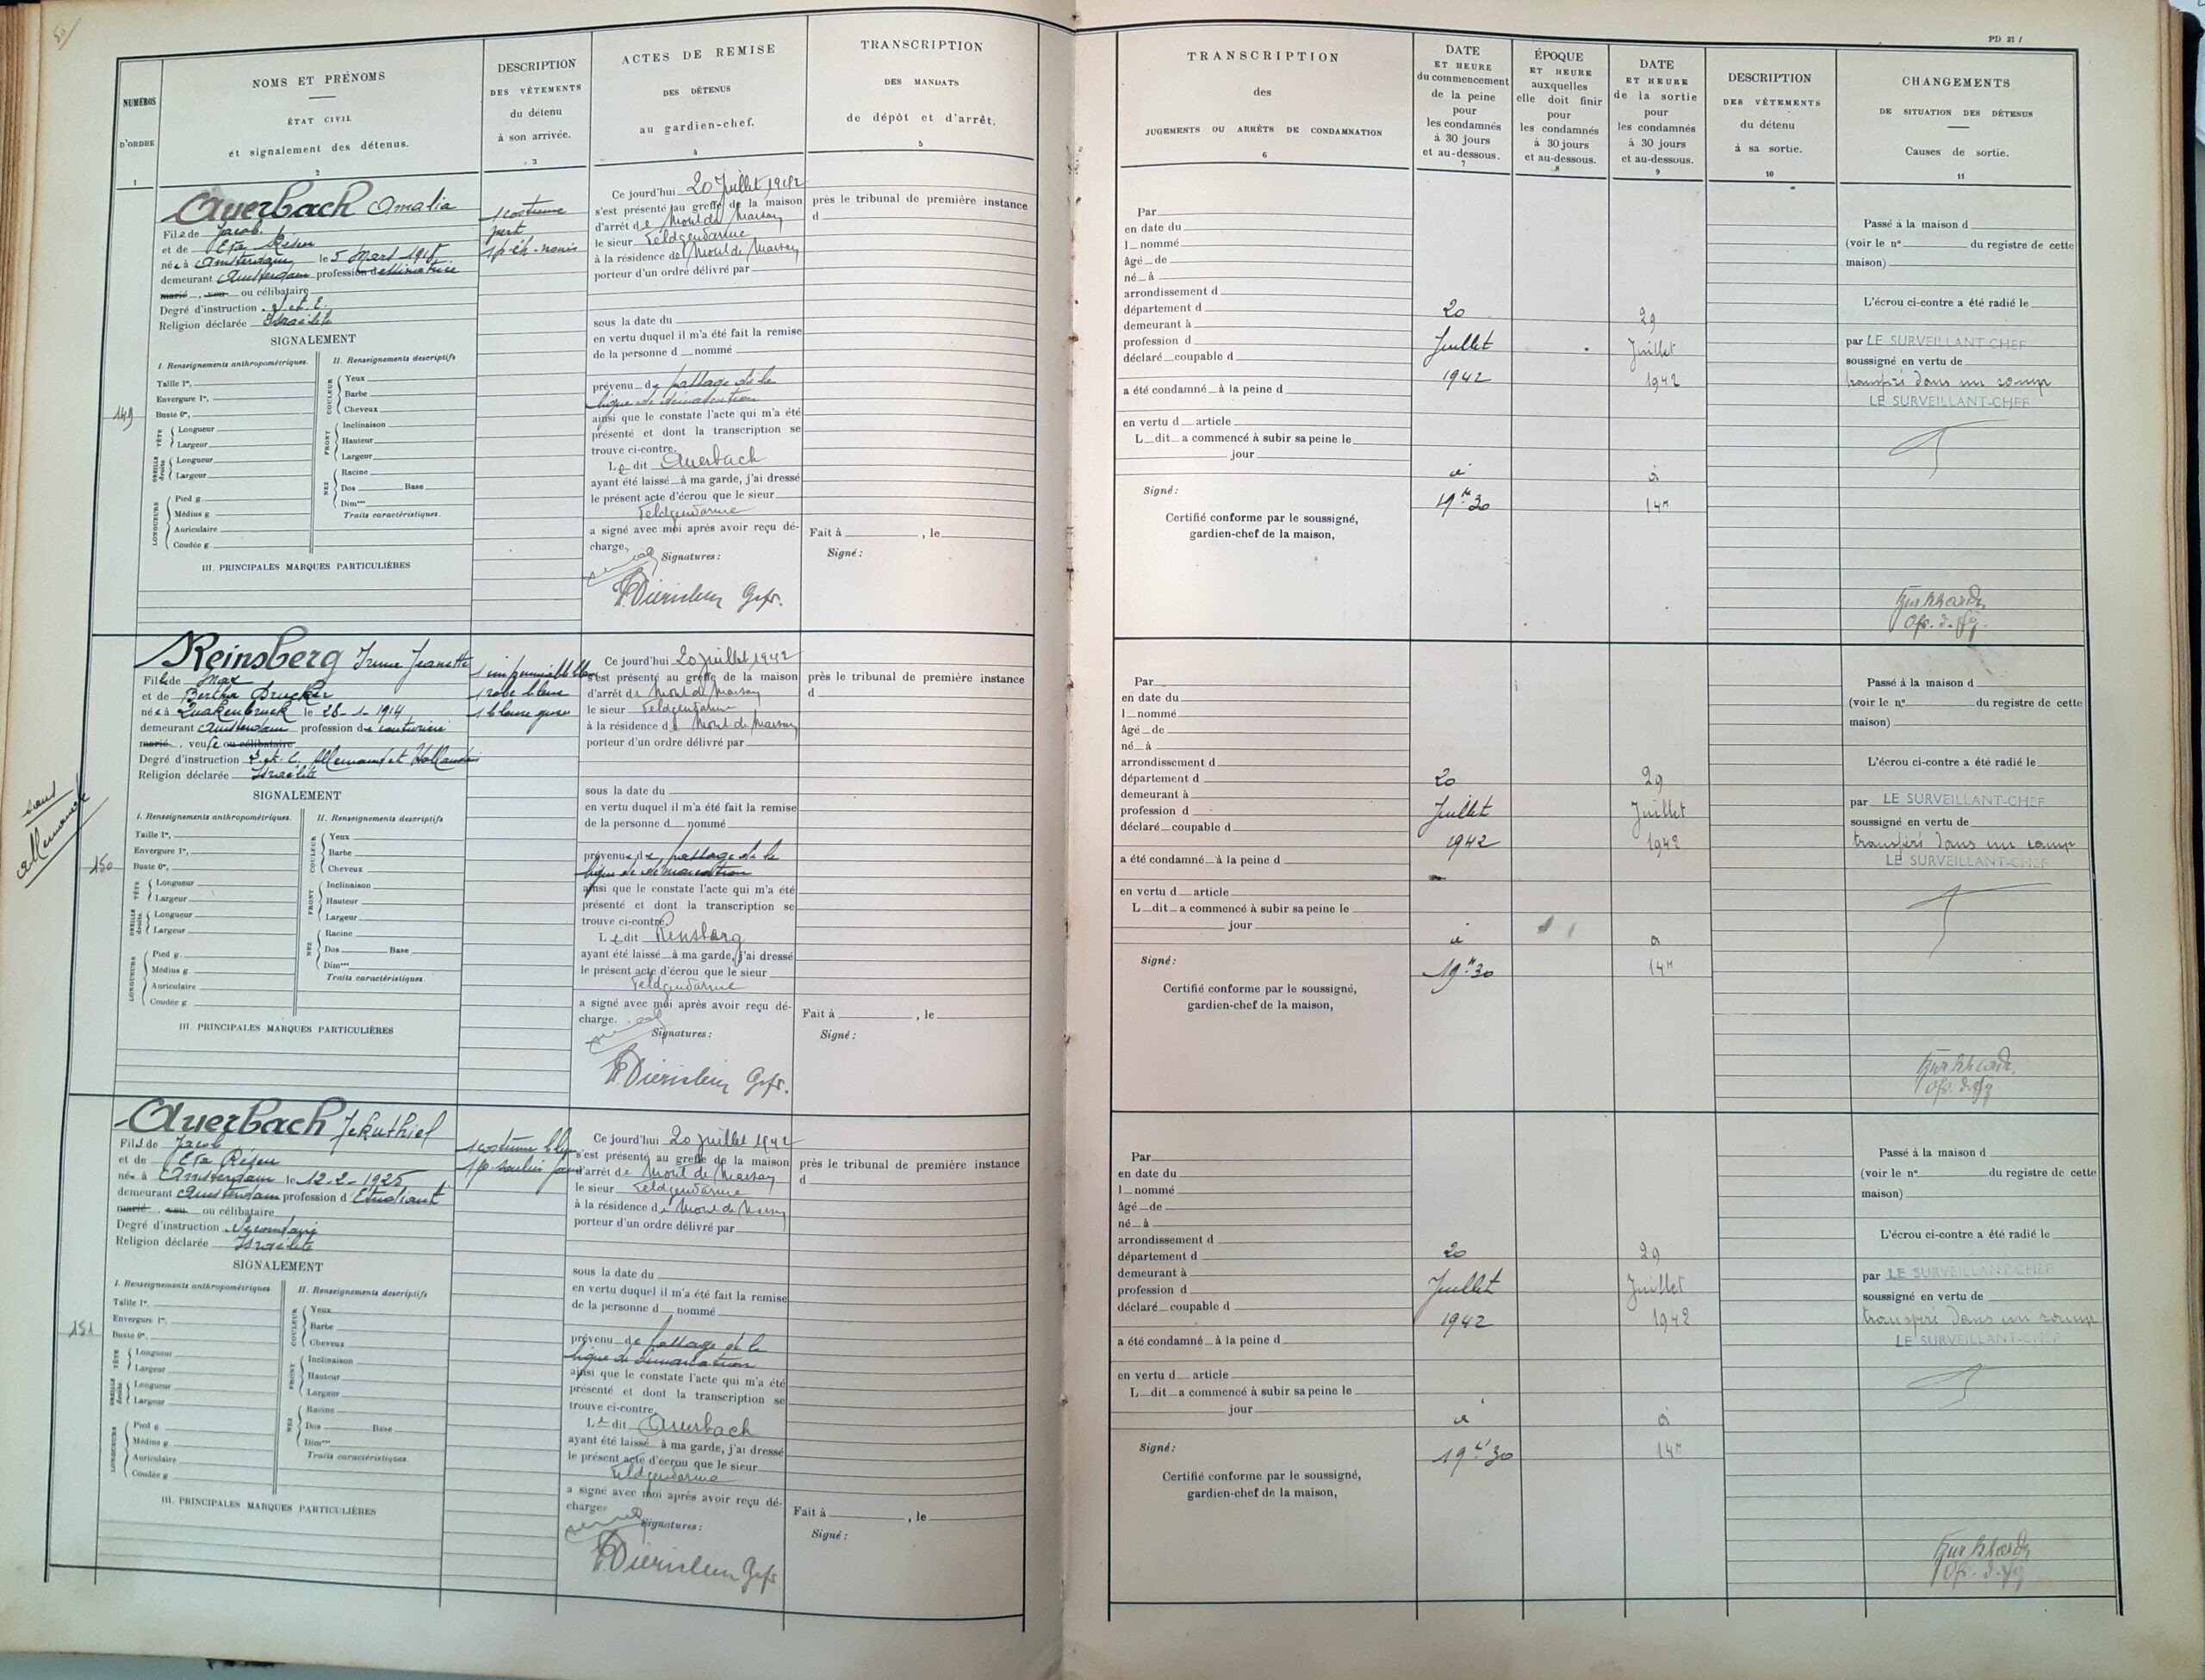 NUMÉROS
D'ORDRE
1
NOMS ET PRÉNOMS
ÉTAT CIVIL
et signalement des détenus.
2
DESCRIPTION
DES VÊTEMENTS
du détenu
à son arrivée.
3
ACTES DE REMISE
DES DÉTENUS
au gardien-chef.
4
TRANSCRIPTION
DES MANDATS
de dépôt et d'arrêt.
5
TRANSCRIPTION
des
JUGEMENTS OU ARRÊTS DE CONDAMNATION
6
DATE
ET HEURE
du commencement
de la peine
pour
les condamnés
à 30 jours
et au-dessous.
7
ÉPOQUE
ET HEURE
auxquelles
elle doit finir
pour
les condamnés
à 30 jours
et au-dessous.
8
DATE
ET HEURE
de la sortie
pour
les condamnés
à 30 jours
et au-dessous.
9
DESCRIPTION
DES VÊTEMENTS
du détenu
à sa sortie.
10
PD 21 /
CHANGEMENTS
DE SITUATION DES DÉTENUS
Causes de sortie.
11
149
Auerbach Amalia
Fil e de Jacob
et de Eva
née à Amsterdam le 5 Mars
demeurant Amsterdam profession dessinatrice
marié, veu ou célibataire
Degré d'instruction
Religion déclarée Israélite
SIGNALEMENT
I. Renseignements anthropométriques.
Taille 1m,
Envergure 1m,
Buste 0m,
TÊTE
Longueur
Largeur
OREILLE droite
Longueur
Largeur
LONGUEURS
Pied g.
Médius g.
Auriculaire
Coudée g.
II. Renseignements descriptifs
COULEUR
Yeux
Barbe
Cheveux
FRONT
Inclinaison
Hauteur
Largeur
NEZ
Racine
Dos Base
Dimons
Traits caractéristiques.
III. PRINCIPALES MARQUES PARTICULIÈRES
1 costume
Ce jourd'hui 20 Juillet 1942
s'est présenté au greffe de la maison
d'arrêt de Mont de Marsan
le sieur Feldgendarme
à la résidence de Mont de Marsan
porteur d'un ordre délivré par
sous la date du
en vertu duquel il m'a été fait la remise
de la personne d nommé
prévenu de passage de la
ligne de démarcation
ainsi que le constate l'acte qui m'a été
présenté et dont la transcription se
trouve ci-contre.
Le dit Auerbach
ayant été laissé à ma garde, j'ai dressé
le présent acte d'écrou que le sieur
Feldgendarme
a signé avec moi après avoir reçu dé-
charge.
Signatures:
Gefr.
près le tribunal de première instance
d
Fait à , le
Signé:
Par
en date du
l nommé
âgé de
né à
arrondissement d
département d
demeurant à
profession d
déclaré coupable d
a été condamné à la peine d
en vertu d article
L dit a commencé à subir sa peine le
jour
Signé:
Certifié conforme par le soussigné,
gardien-chef de la maison,
20
Juillet
1942
à
19h30
29
Juillet
1942
à
14h
Passé à la maison d
(voir le n° du registre de cette
maison)
L'écrou ci-contre a été radié le
par LE SURVEILLANT-CHEF
soussigné en vertu de
transféré dans un camp
LE SURVEILLANT-CHEF
150
sans
Reinsberg Irma Jeanette
Fille de Max
et de Bertha Drucker
née à Quakenbruck le 28-1-1914
demeurant Amsterdam profession de couturière
marié, veufe ou célibataire
Degré d'instruction Allemand et Hollandais
Religion déclarée Israélite
SIGNALEMENT
I. Renseignements anthropométriques.
Taille 1m,
Envergure 1m,
Buste 0m,
TÊTE
Longueur
Largeur
OREILLE droite
Longueur
Largeur
LONGUEURS
Pied g.
Médius g.
Auriculaire
Coudée g.
II. Renseignements descriptifs
COULEUR
Yeux
Barbe
Cheveux
FRONT
Inclinaison
Hauteur
Largeur
NEZ
Racine
Dos Base
Dimons
Traits caractéristiques.
III. PRINCIPALES MARQUES PARTICULIÈRES
1 imperméable bleu
1 robe bleue
1 blouse
Ce jourd'hui 20 juillet 1942
s'est présenté au greffe de la maison
d'arrêt de Mont de Marsan
le sieur Feldgendarme
à la résidence de Mont de Marsan
porteur d'un ordre délivré par
sous la date du
en vertu duquel il m'a été fait la remise
de la personne d nommé
prévenue de passage de la
ligne de démarcation
ainsi que le constate l'acte qui m'a été
présenté et dont la transcription se
trouve ci-contre.
Le dit Rensberg
ayant été laissé à ma garde, j'ai dressé
le présent acte d'écrou que le sieur
Feldgendarme
a signé avec moi après avoir reçu dé-
charge.
Signatures:
Gefr.
près le tribunal de première instance
d
Fait à , le
Signé:
Par
en date du
l nommé
âgé de
né à
arrondissement d
département d
demeurant à
profession d
déclaré coupable d
a été condamné à la peine d
en vertu d article
L dit a commencé à subir sa peine le
jour
Signé:
Certifié conforme par le soussigné,
gardien-chef de la maison,
20
Juillet
1942
à
19h30
29
Juillet
1942
à
14h
Passé à la maison d
(voir le n° du registre de cette
maison)
L'écrou ci-contre a été radié le
par LE SURVEILLANT-CHEF
soussigné en vertu de
transféré dans un camp
LE SURVEILLANT-CHEF
151
Auerbach Jekuthiel
Fils de Jacob
et de Eva
né à Amsterdam le 12-2-1925
demeurant Amsterdam profession d'Etudiant
marié, veu ou célibataire
Degré d'instruction Secondaire
Religion déclarée Israélite
SIGNALEMENT
I. Renseignements anthropométriques
Taille 1m,
Envergure 1m,
Buste 0m,
TÊTE
Longueur
Largeur
OREILLE droite
Longueur
Largeur
LONGUEURS
Pied g.
Médius g.
Auriculaire
Coudée g.
II. Renseignements descriptifs
COULEUR
Yeux
Barbe
Cheveux
FRONT
Inclinaison
Hauteur
Largeur
NEZ
Racine
Dos Base
Dimons
Traits caractéristiques.
III. PRINCIPALES MARQUES PARTICULIÈRES
1 costume bleu
Ce jourd'hui 20 juillet 1942
s'est présenté au greffe de la maison
d'arrêt de Mont de Marsan
le sieur Feldgendarme
à la résidence de Mont de Marsan
porteur d'un ordre délivré par
sous la date du
en vertu duquel il m'a été fait la remise
de la personne d nommé
prévenu de passage de la
ligne de démarcation
ainsi que le constate l'acte qui m'a été
présenté et dont la transcription se
trouve ci-contre.
Le dit Auerbach
ayant été laissé à ma garde, j'ai dressé
le présent acte d'écrou que le sieur
Feldgendarme
a signé avec moi après avoir reçu dé-
charge.
Signatures:
Gefr
près le tribunal de première instance
d
Fait à , le
Signé:
Par
en date du
l nommé
âgé de
né à
arrondissement d
département d
demeurant à
profession d
déclaré coupable d
a été condamné à la peine d
en vertu d article
L dit a commencé à subir sa peine le
jour
Signé:
Certifié conforme par le soussigné,
gardien-chef de la maison,
20
Juillet
1942
à
19h30
29
Juillet
1942
à
14h
Passé à la maison d
(voir le n° du registre de cette
maison)
L'écrou ci-contre a été radié le
par LE SURVEILLANT-CHEF
soussigné en vertu de
transféré dans un camp
LE SURVEILLANT-CHEF